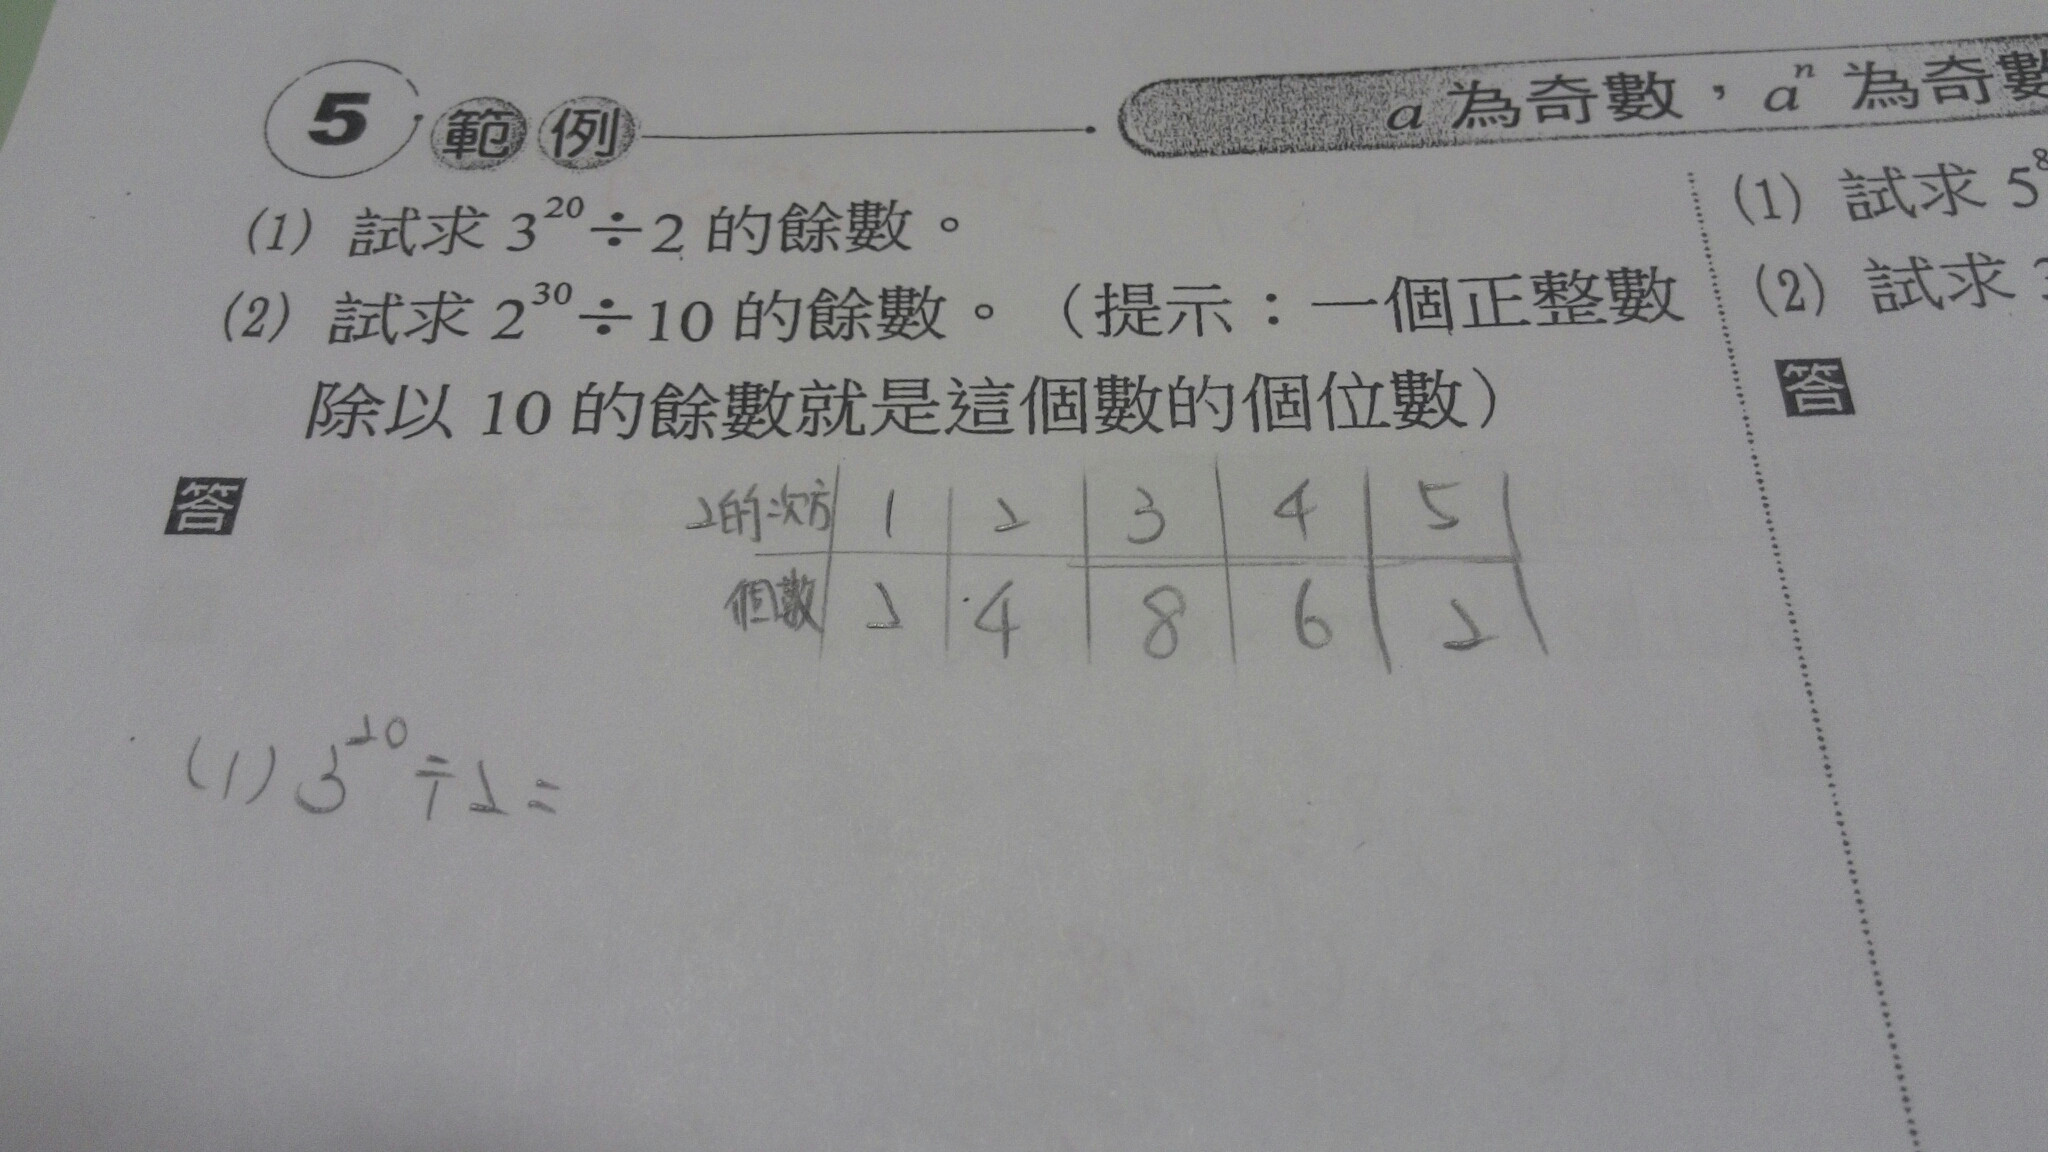 5 範例
a 為奇數，aⁿ 為奇數
(1) 試求 3²⁰÷2 的餘數。
(2) 試求 2³⁰÷10 的餘數。（提示：一個正整數
除以 10 的餘數就是這個數的個位數）
答
2的次方 1 2 3 4 5
個數 2 4 8 6 2
(1) 3²⁰÷2=
(1) 試求 5⁸
(2) 試求 3
答